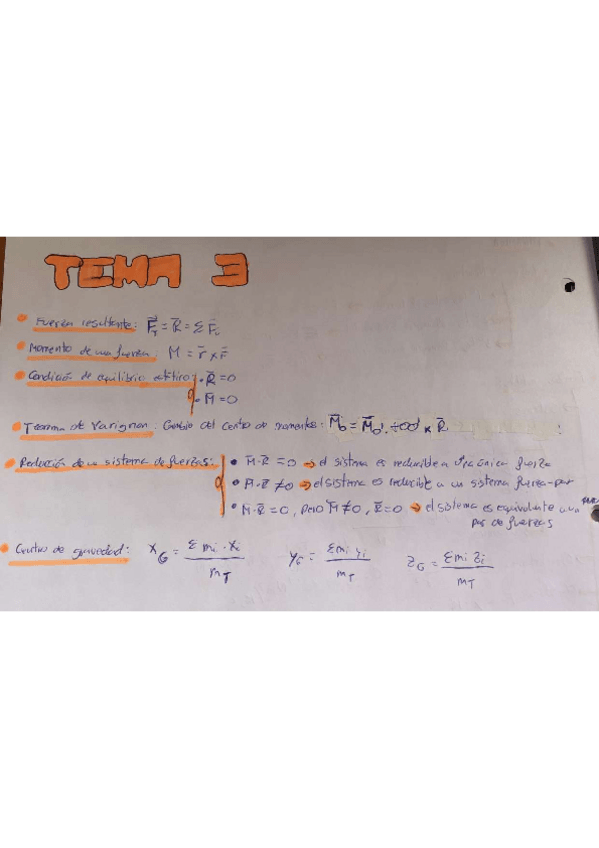 TEMA 3
Fuerza resultante: F⃗_T = R̄ = Σ F̄_i
Momento de una fuerza: M = r̄ x F̄
Condición de equilibrio estático: • R̄ = 0
• M̄ = 0
Teorema de Varignon: Cambio del centro de momentos: M̄o = M̄o' + OO' x R̄
Reducción de un sistema de fuerzas: • M̄·R̄ = 0 → el sistema es reducible a única fuerza
• M̄·R̄ ≠ 0 → el sistema es reducible a un sistema fuerza-par
• M̄·R̄ = 0, pero M̄ ≠ 0, R̄ = 0 → el sistema es equivalente a un par
par de fuerzas
Centro de gravedad: X_G = Σ mi · Xi / m_T y_G = Σ mi yi / m_T z_G = Σ mi zi / m_T